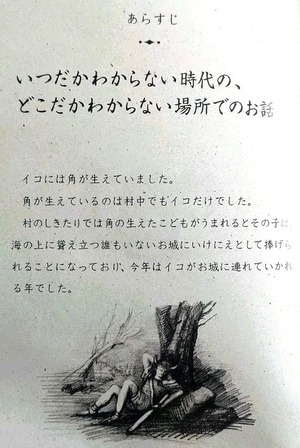 あらすじ
いつだかわからない時代の、
どこだかわからない場所でのお話
イコには角が生えていました。
角が生えているのは村中でもイコだけでした。
村のしきたりでは角の生えたこどもがうまれるとその子は、
海の上に聳え立つ誰もいないお城にいけにえとして捧げら
れることになっており、今年はイコがお城に連れていかれ
る年でした。